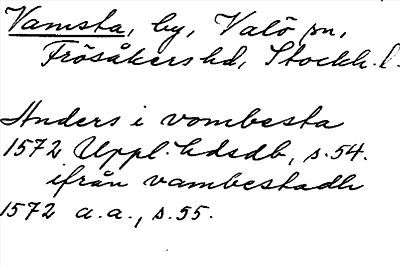 Vamsta, by, Valö sn,
Frösåkers hd, Stockh. l.
Anders i vombesta
1572 Uppl. hdsdb, s. 54.
ifrån vambestadh
1572 a.a., s. 55.